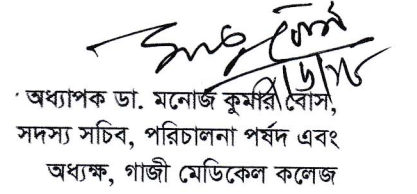 অধ্যাপক ডা. মনোজ কুমার বোস,
সদস্য সচিব, পরিচালনা পর্ষদ এবং
অধ্যক্ষ, গাজী মেডিকেল কলেজ